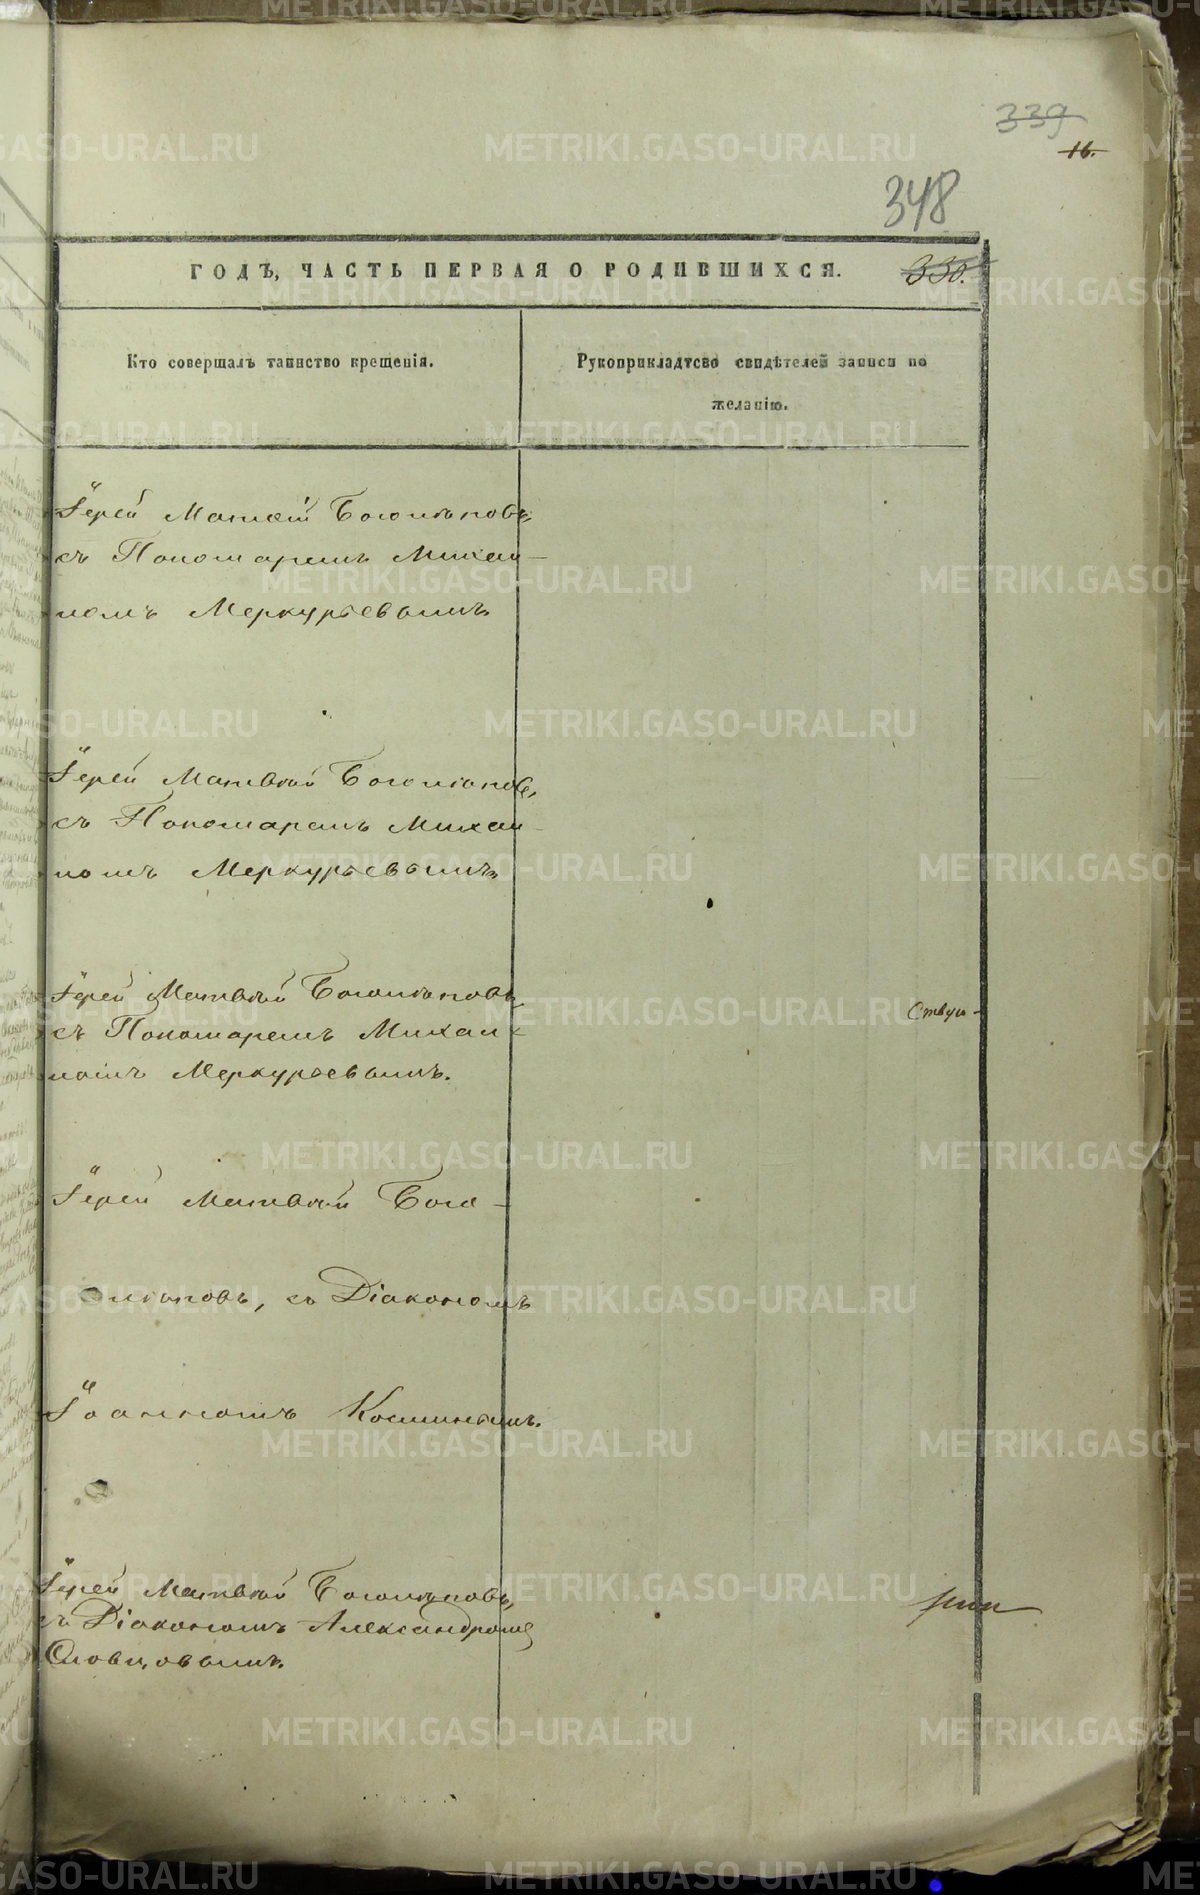 339
16.
348
ГОДЪ, ЧАСТЬ ПЕРВАЯ О РОДИВШИХСЯ.
330.
Кто совершалъ таинство крещенія.
Рукоприкладтсво свидѣтелей записи по
желанію.
Іерей Матвѣй Боголѣповъ,
съ Пономаремъ Михаи-
ломъ Меркурьевымъ.
Іерей Матвѣй Боголѣповъ,
съ Пономаремъ Михаи-
ломъ Меркурьевымъ.
Іерей Матвѣй Боголѣповъ,
съ Пономаремъ Михаи-
ломъ Меркурьевымъ.
Іерей Матвѣй Бого-
лѣповъ, съ Діакономъ
Іоанномъ
Іерей Матвѣй Боголѣповъ,
съ Діакономъ Александромъ
Словцовымъ.
METRIKI.GASO-URAL.RU